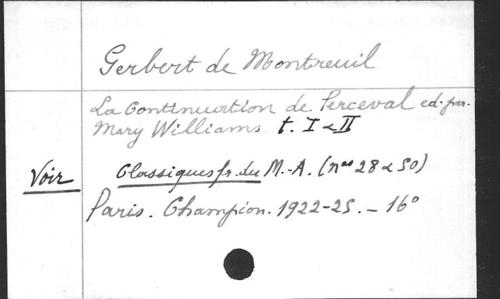 Gerbert de Montreuil
La Continuation de Perceval ed. par.
Mary Williams. t. I & II
Voir Classiques fr. du M.-A. (nos 28 & 50)
Paris. Champion. 1922-25. - 16°